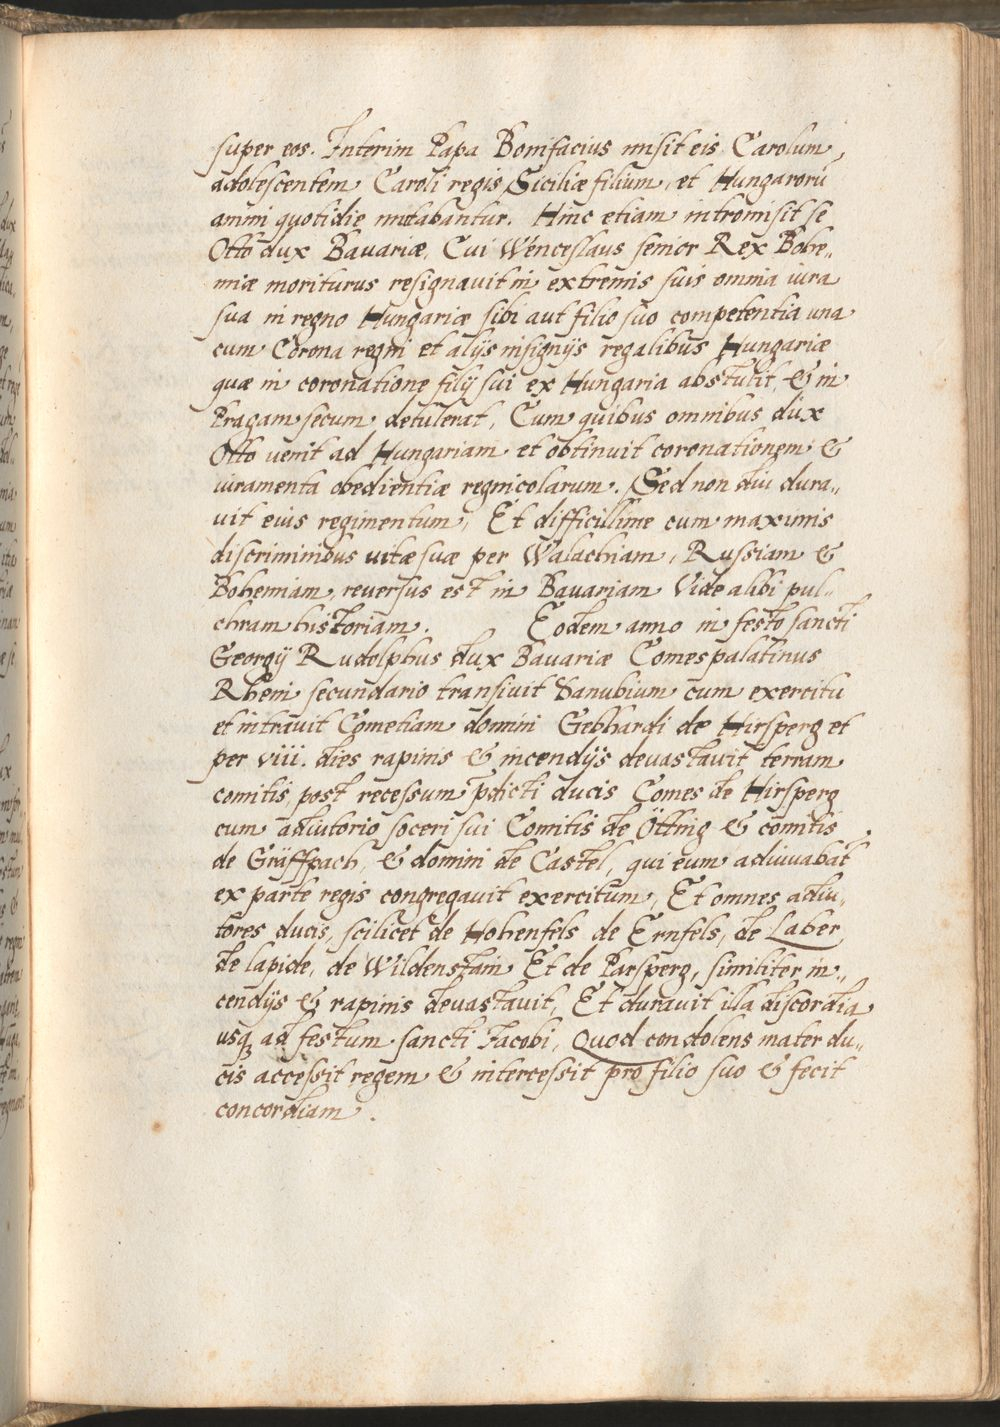 super eos. Interim Papa Bonifacius misit eis Carolum,
adolescentem Caroli regis Siciliæ filium, et Hungarorū
animi quotidie mutabantur. Hinc etiam intromisit se
Otto dux Bavariæ, Cui Wenceslaus senior Rex Bohe„
miæ moriturus resignavit in extremis suis omnia iura
sua in regno Hungariæ sibi aut filio suo competentia una
cum Corona regni et alijs insignijs regalibus Hungariæ
quæ in coronatione filij sui ex Hungaria abstulit, & in
Pragam secum detulerat, Cum quibus omnibus dux
Otto venit ad Hungariam et obtinuit coronationem &
iuramenta obedientiæ regnicolarum. Sed non diu dura„
vit eius regimentum, Et difficillime cum maximis
discriminibus vitæ suæ per Walachiam, Russiam &
Bohemiam, reversus est in Bavariam Vide alibi pul„
chram historiam. Eodem anno in festo sancti
Georgij Rudolphus dux Bavariæ Comes palatinus
Rheni secundario transivit Danubium cum exercitu
et intravit Cometiam domini Gebhardi de Hirsperg et
per viii. dies rapinis & incendijs devastavit terram
comitis, post recessum p̄dicti ducis Comes de Hirsperg
cum adiutorio soceri sui Comitis de Öttnig & comitis
de Gräffpach, & domini de Castel, qui eum adiuvabāt
ex parte regis congregavit exercitum, Et omnes adiu„
tores ducis, scilicet de Hohenfels de Ernfels, de Laber
de lapide, de Wildenstain Et de Parsperg, similiter in„
cendijs & rapinis devastavit, Et duravit illa discordia
usq̢ ad festum sancti Jacobi, Quod condolens mater du„
cis accessit regem & intercessit pro filio suo & fecit
concordiam.